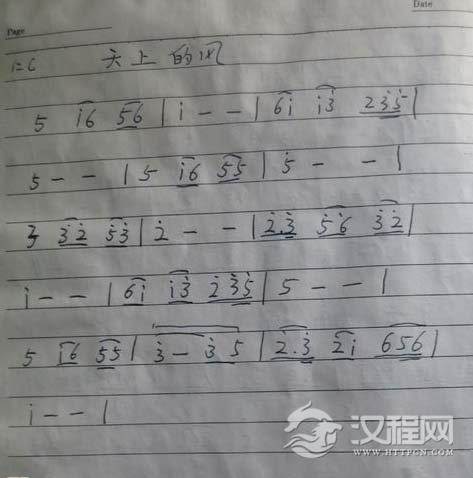 Page
Date
1=C 天上的风
5 i̇6 56 | i̇ - - | 6i̇ i̇3̇ 2̇3̇5̇ |
5 - - | 5 i̇6 55 | 5̇ - - |
3̇ 3̇2̇ 5̇3̇ | 2̇ - - | 2̇.3̇ 5̇6̇ 3̇2̇ |
i̇ - - | 6i̇ i̇3̇ 2̇3̇5̇ | 5 - - |
5 i̇6 55 | 3̇ - 3̇ 5 | 2̇.3̇ 2̇i̇ 656 |
i̇ - - |
汉程网
WWW.HTTPCN.COM